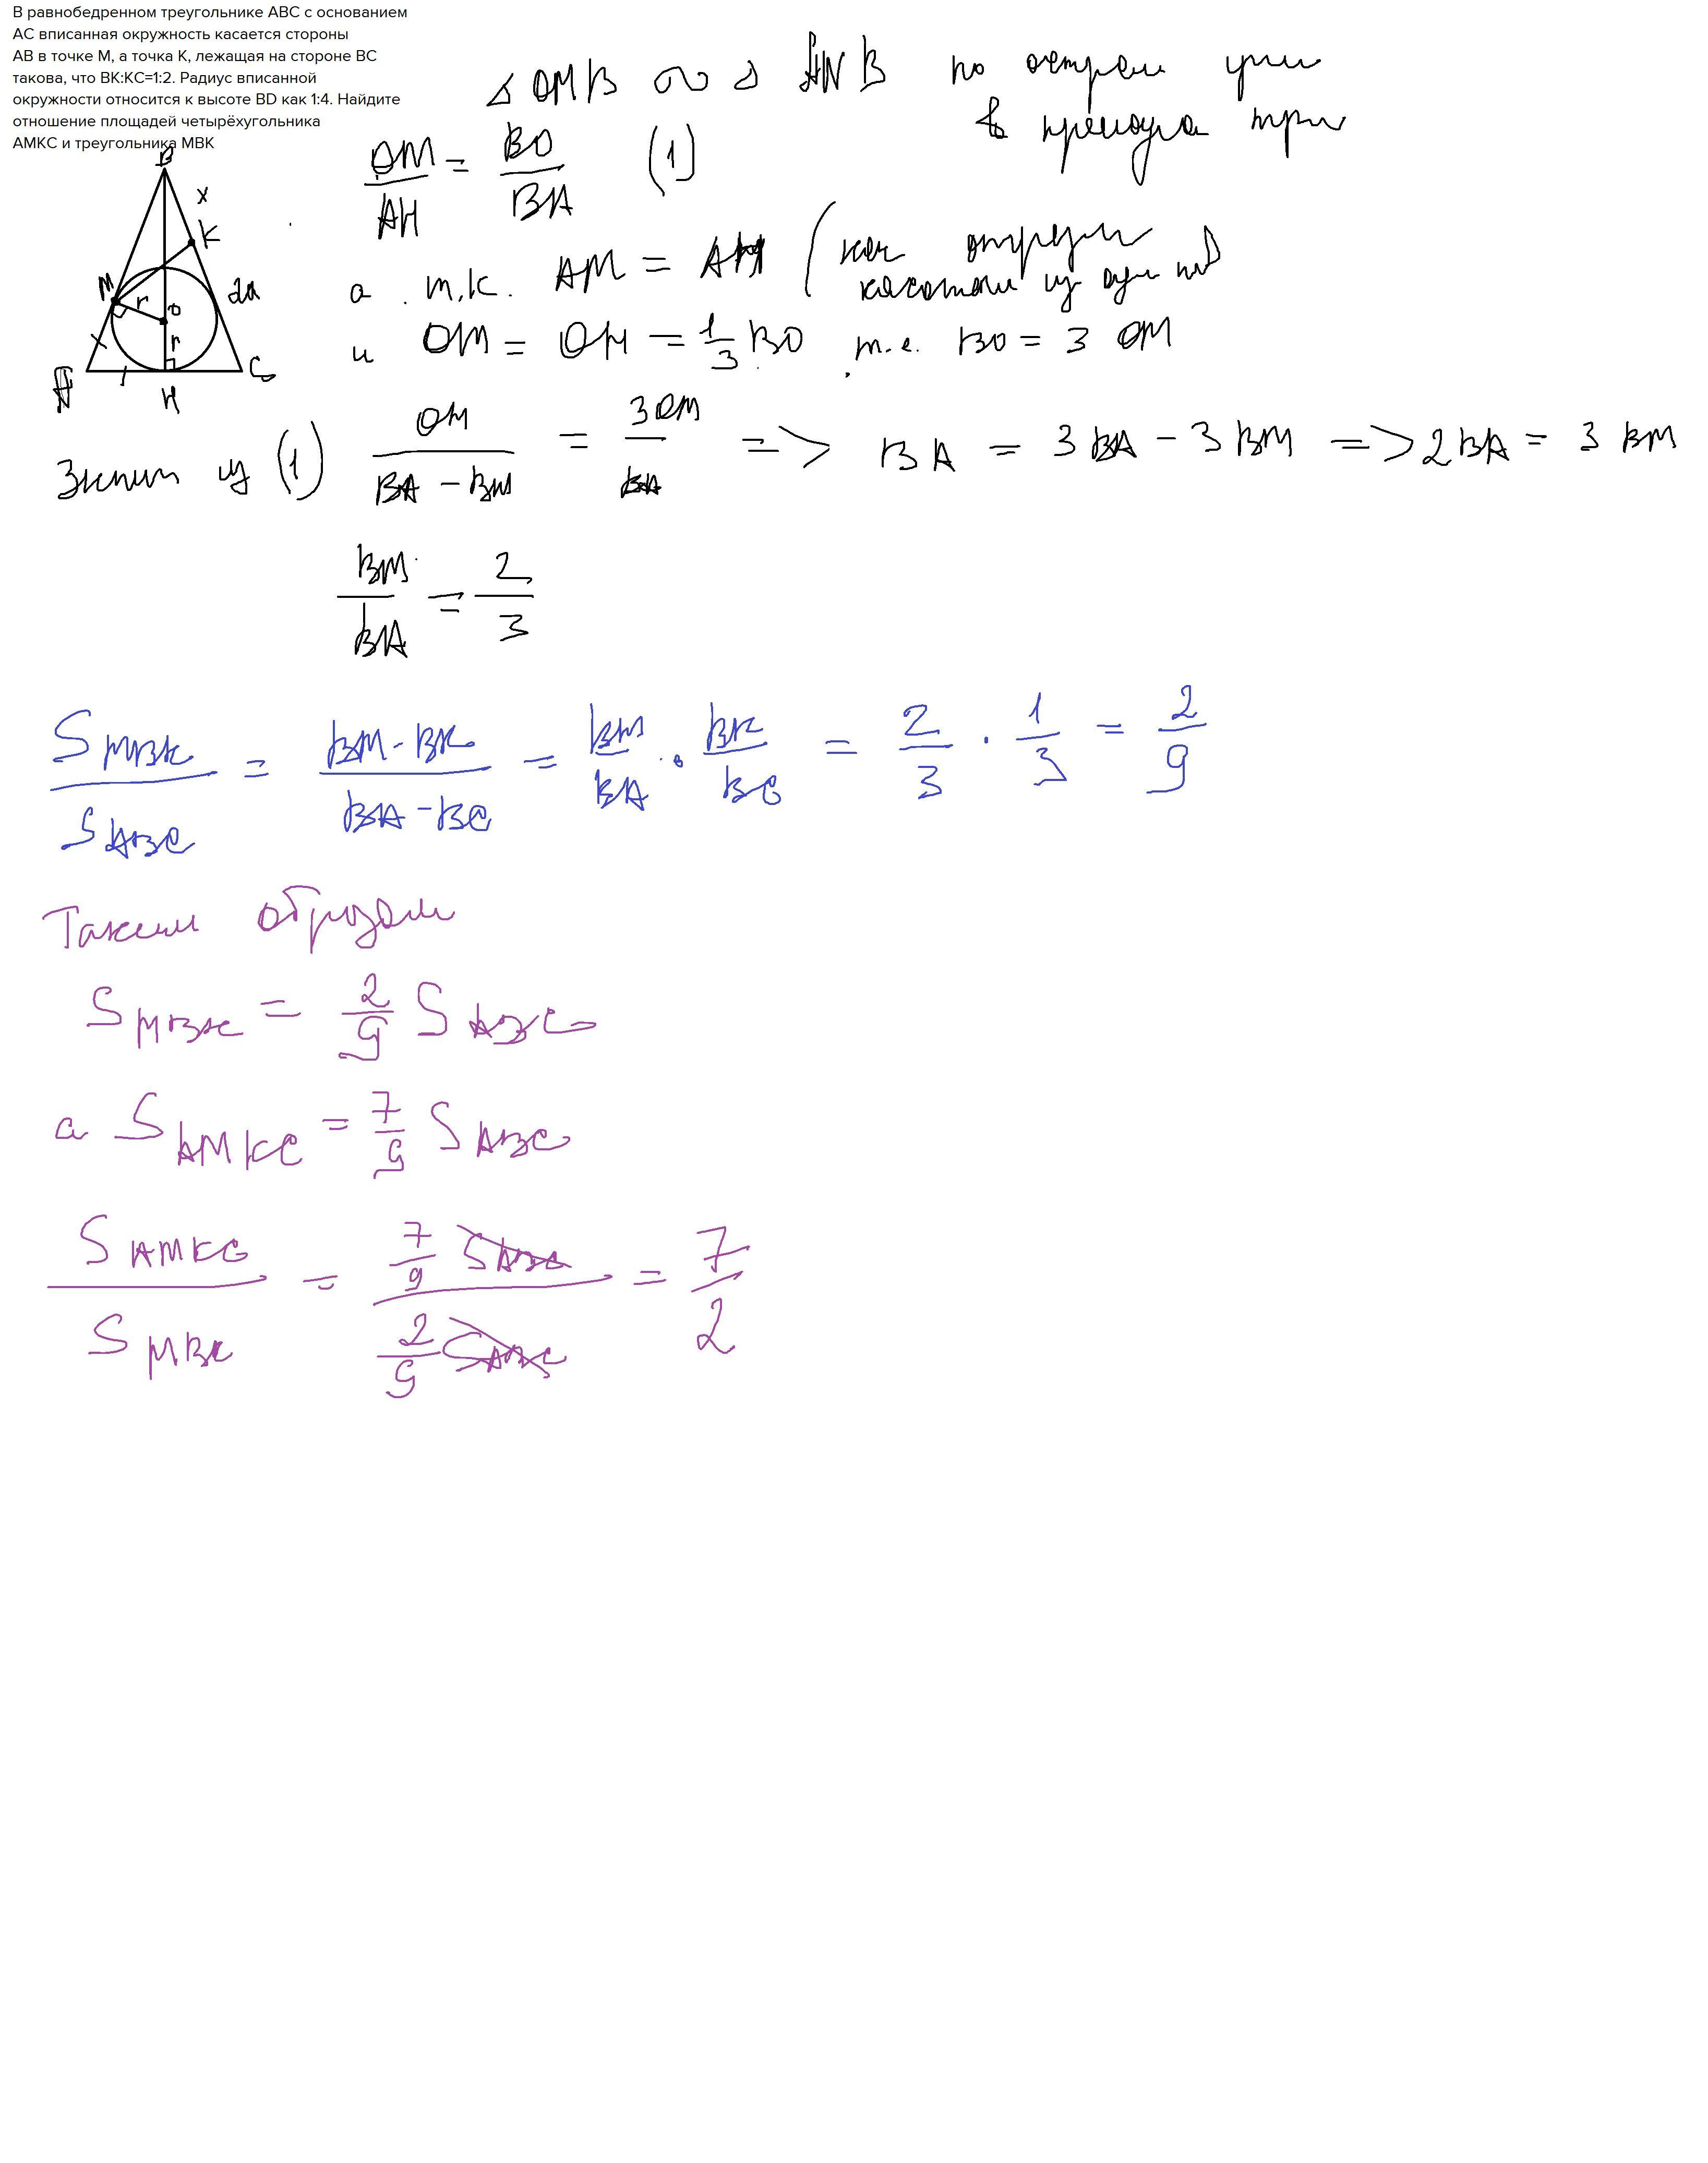 В равнобедренном треугольнике ABC с основанием
AC вписанная окружность касается стороны
AB в точке M, а точка K, лежащая на стороне BC
такова, что BK:KC=1:2. Радиус вписанной
окружности относится к высоте BD как 1:4. Найдите
отношение площадей четырёхугольника
AMKC и треугольника MBK
B
x
K
M
r
o
2x
x
r
A
C
H
△ OMB ∾ △ AHB по острым
в
OM/AH = BO/BA (1)
а т.к. AM = AH (как
и OM = OH = 1/3 BO т.е. BO = 3 OM
Значит из (1) OM/(BA - BM) = 3OM/BA => BA = 3BA - 3BM => 2BA = 3BM
BM/BA = 2/3
S MBK / S ABC = BM · BK / BA · BC = BM/BA · BK/BC = 2/3 · 1/3 = 2/9
Таким образом
S MBK = 2/9 S ABC
а S AMKC = 7/9 S ABC
S AMKC / S MBK = 7/9 S ABC / 2/9 S ABC = 7/2